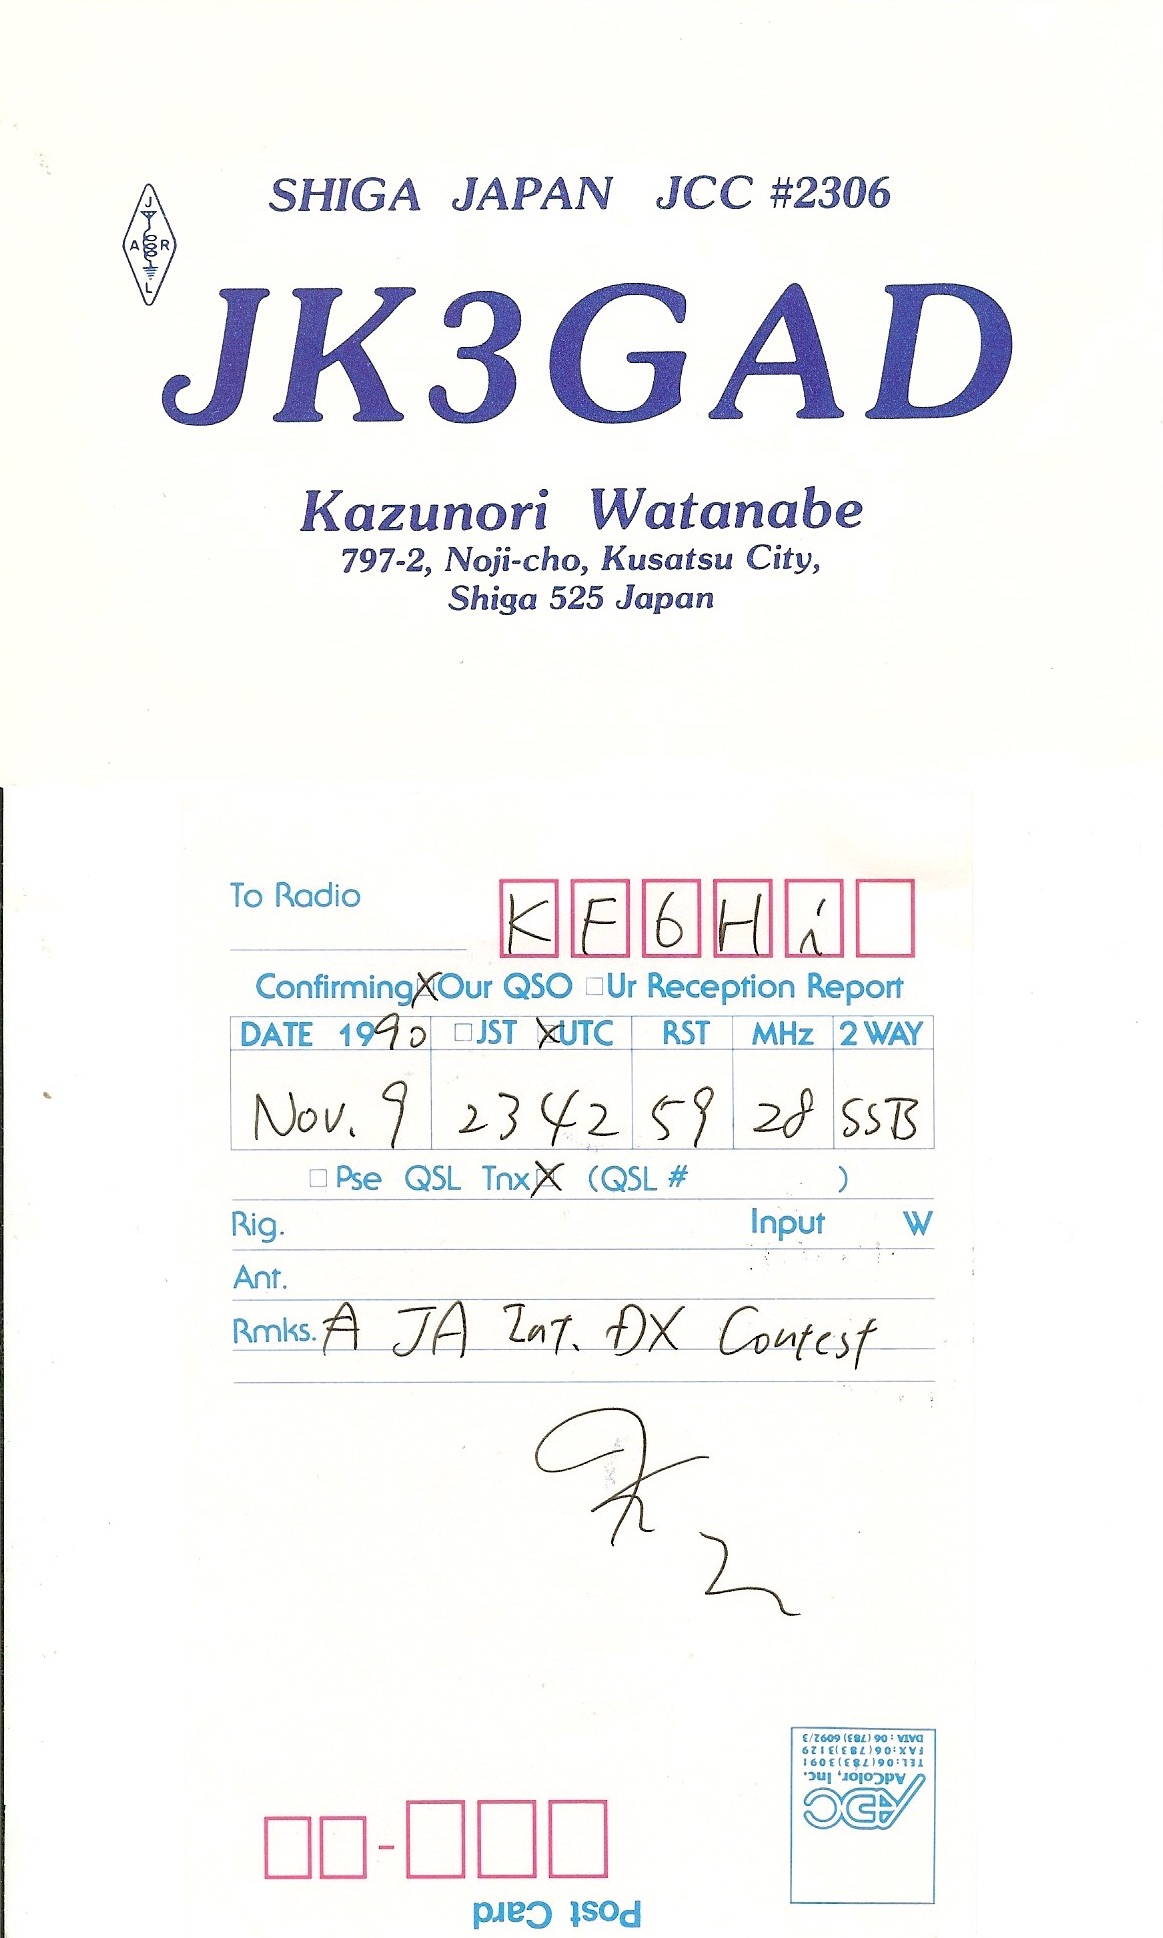 SHIGA JAPAN JCC #2306
J
A R
L
JK3GAD
Kazunori Watanabe
797-2, Noji-cho, Kusatsu City,
Shiga 525 Japan
To Radio KF6Hi
Confirming X Our QSO □Ur Reception Report
DATE 1990 □JST XUTC RST MHz 2 WAY
Nov. 9 2342 59 28 SSB
□Pse QSL Tnx X (QSL # )
Rig. Input W
Ant.
Rmks. A JA Int. DX Contest
Post Card
ADC
AdColor, Inc.
TEL:06(783)3091
FAX:06(783)3129
DATA:06(783)6092/3